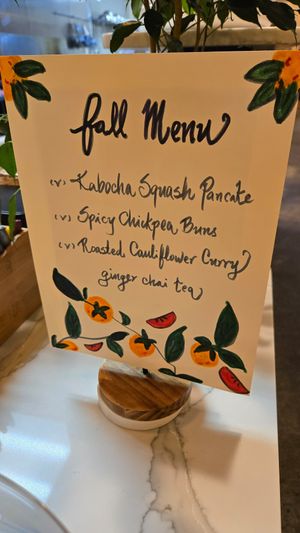 fall Menu
(v) Kabocha Squash Pancake
(v) Spicy Chickpea Buns
(v) Roasted Cauliflower Curry
ginger chai tea